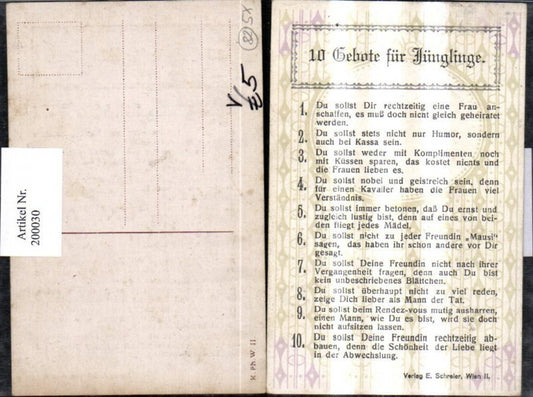 Artikel Nr.
200030
5X
V
5
K. Ph. W II.
10 Gebote für Jünglinge.
1. Du sollst Dir rechtzeitig eine Frau an-
schaffen, es muß doch nicht gleich geheiratet
werden.
2. Du sollst stets nicht nur Humor, sondern
auch bei Kassa sein.
3. Du sollst weder mit Komplimenten noch
mit Küssen sparen, das kostet nichts und
die Frauen lieben es.
4. Du sollst nobel und geistreich sein, denn
für einen Kavalier haben die Frauen viel
Verständnis.
5. Du sollst immer betonen, daß Du ernst und
zugleich lustig bist, denn auf eines von bei-
den fliegt jedes Mädel.
6. Du sollst nicht zu jeder Freundin „Mausi"
sagen, das haben ihr schon andere vor Dir
gesagt.
7. Du sollst Deine Freundin nicht nach ihrer
Vergangenheit fragen, denn auch Du bist
kein unbeschriebenes Blättchen.
8. Du sollst überhaupt nicht zu viel reden,
zeige Dich lieber als Mann der Tat.
9. Du sollst beim Rendez-vous mutig ausharren,
einen Mann, wie Du es bist, wird sie doch
nicht aufsitzen lassen.
10. Du sollst Deine Freundin rechtzeitig ab-
bauen, denn die Schönheit der Liebe liegt
in der Abwechslung.
Verlag E. Schreier, Wien II.